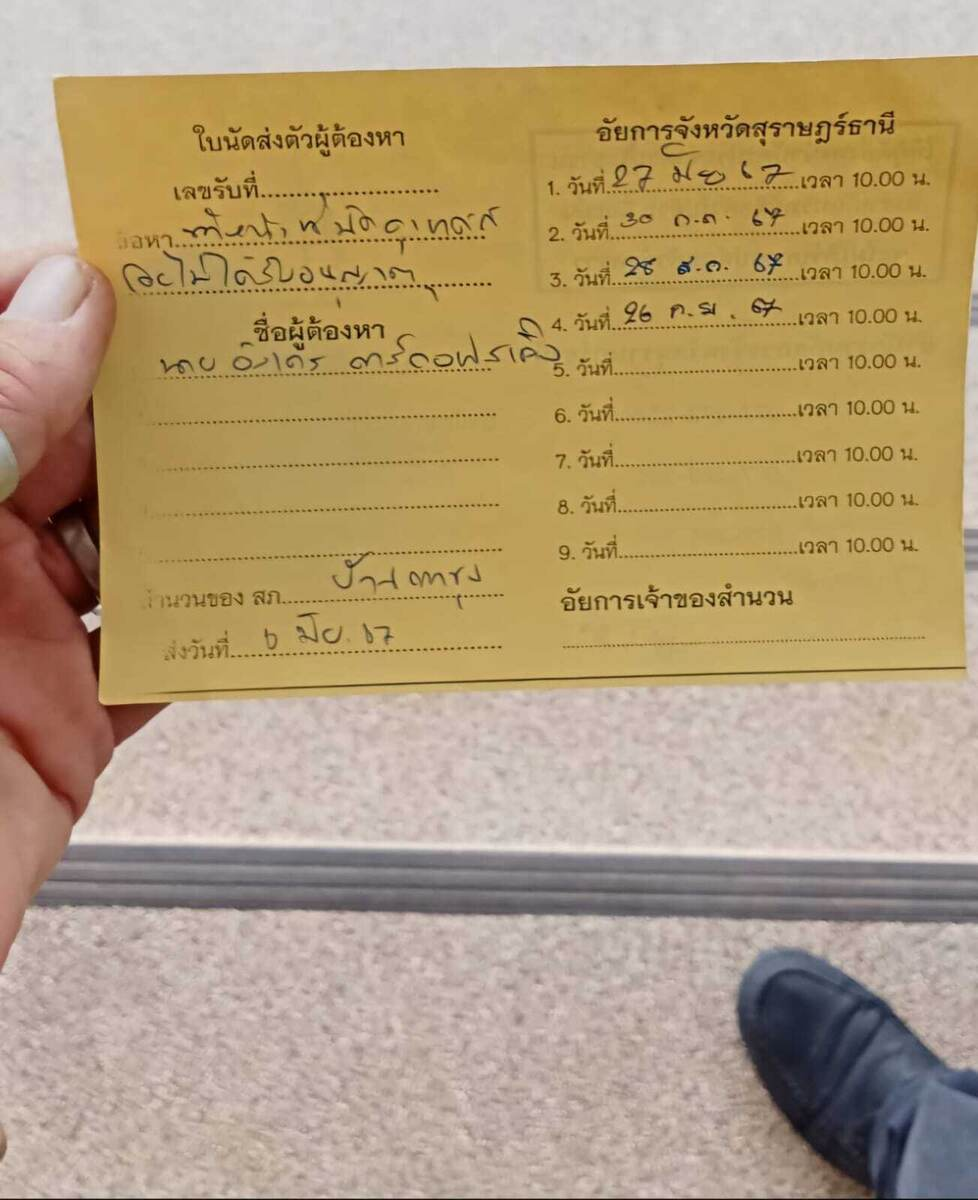 ใบนัดส่งตัวผู้ต้องหา
เลขรับที่
ข้อหา ทำหน้าที่มัคคุเทศก์
โดยไม่ได้รับอนุญาต
ชื่อผู้ต้องหา
นาย
สำนวนของ สภ. บ้านตาขุน
ส่งวันที่ 6 มิย. 67
อัยการจังหวัดสุราษฎร์ธานี
1. วันที่ 27 มิย 67 เวลา 10.00 น.
2. วันที่ 30 ก.ค. 67 เวลา 10.00 น.
3. วันที่ 28 ส.ค. 67 เวลา 10.00 น.
4. วันที่ 26 ก.ย. 67 เวลา 10.00 น.
5. วันที่ เวลา 10.00 น.
6. วันที่ เวลา 10.00 น.
7. วันที่ เวลา 10.00 น.
8. วันที่ เวลา 10.00 น.
9. วันที่ เวลา 10.00 น.
อัยการเจ้าของสำนวน